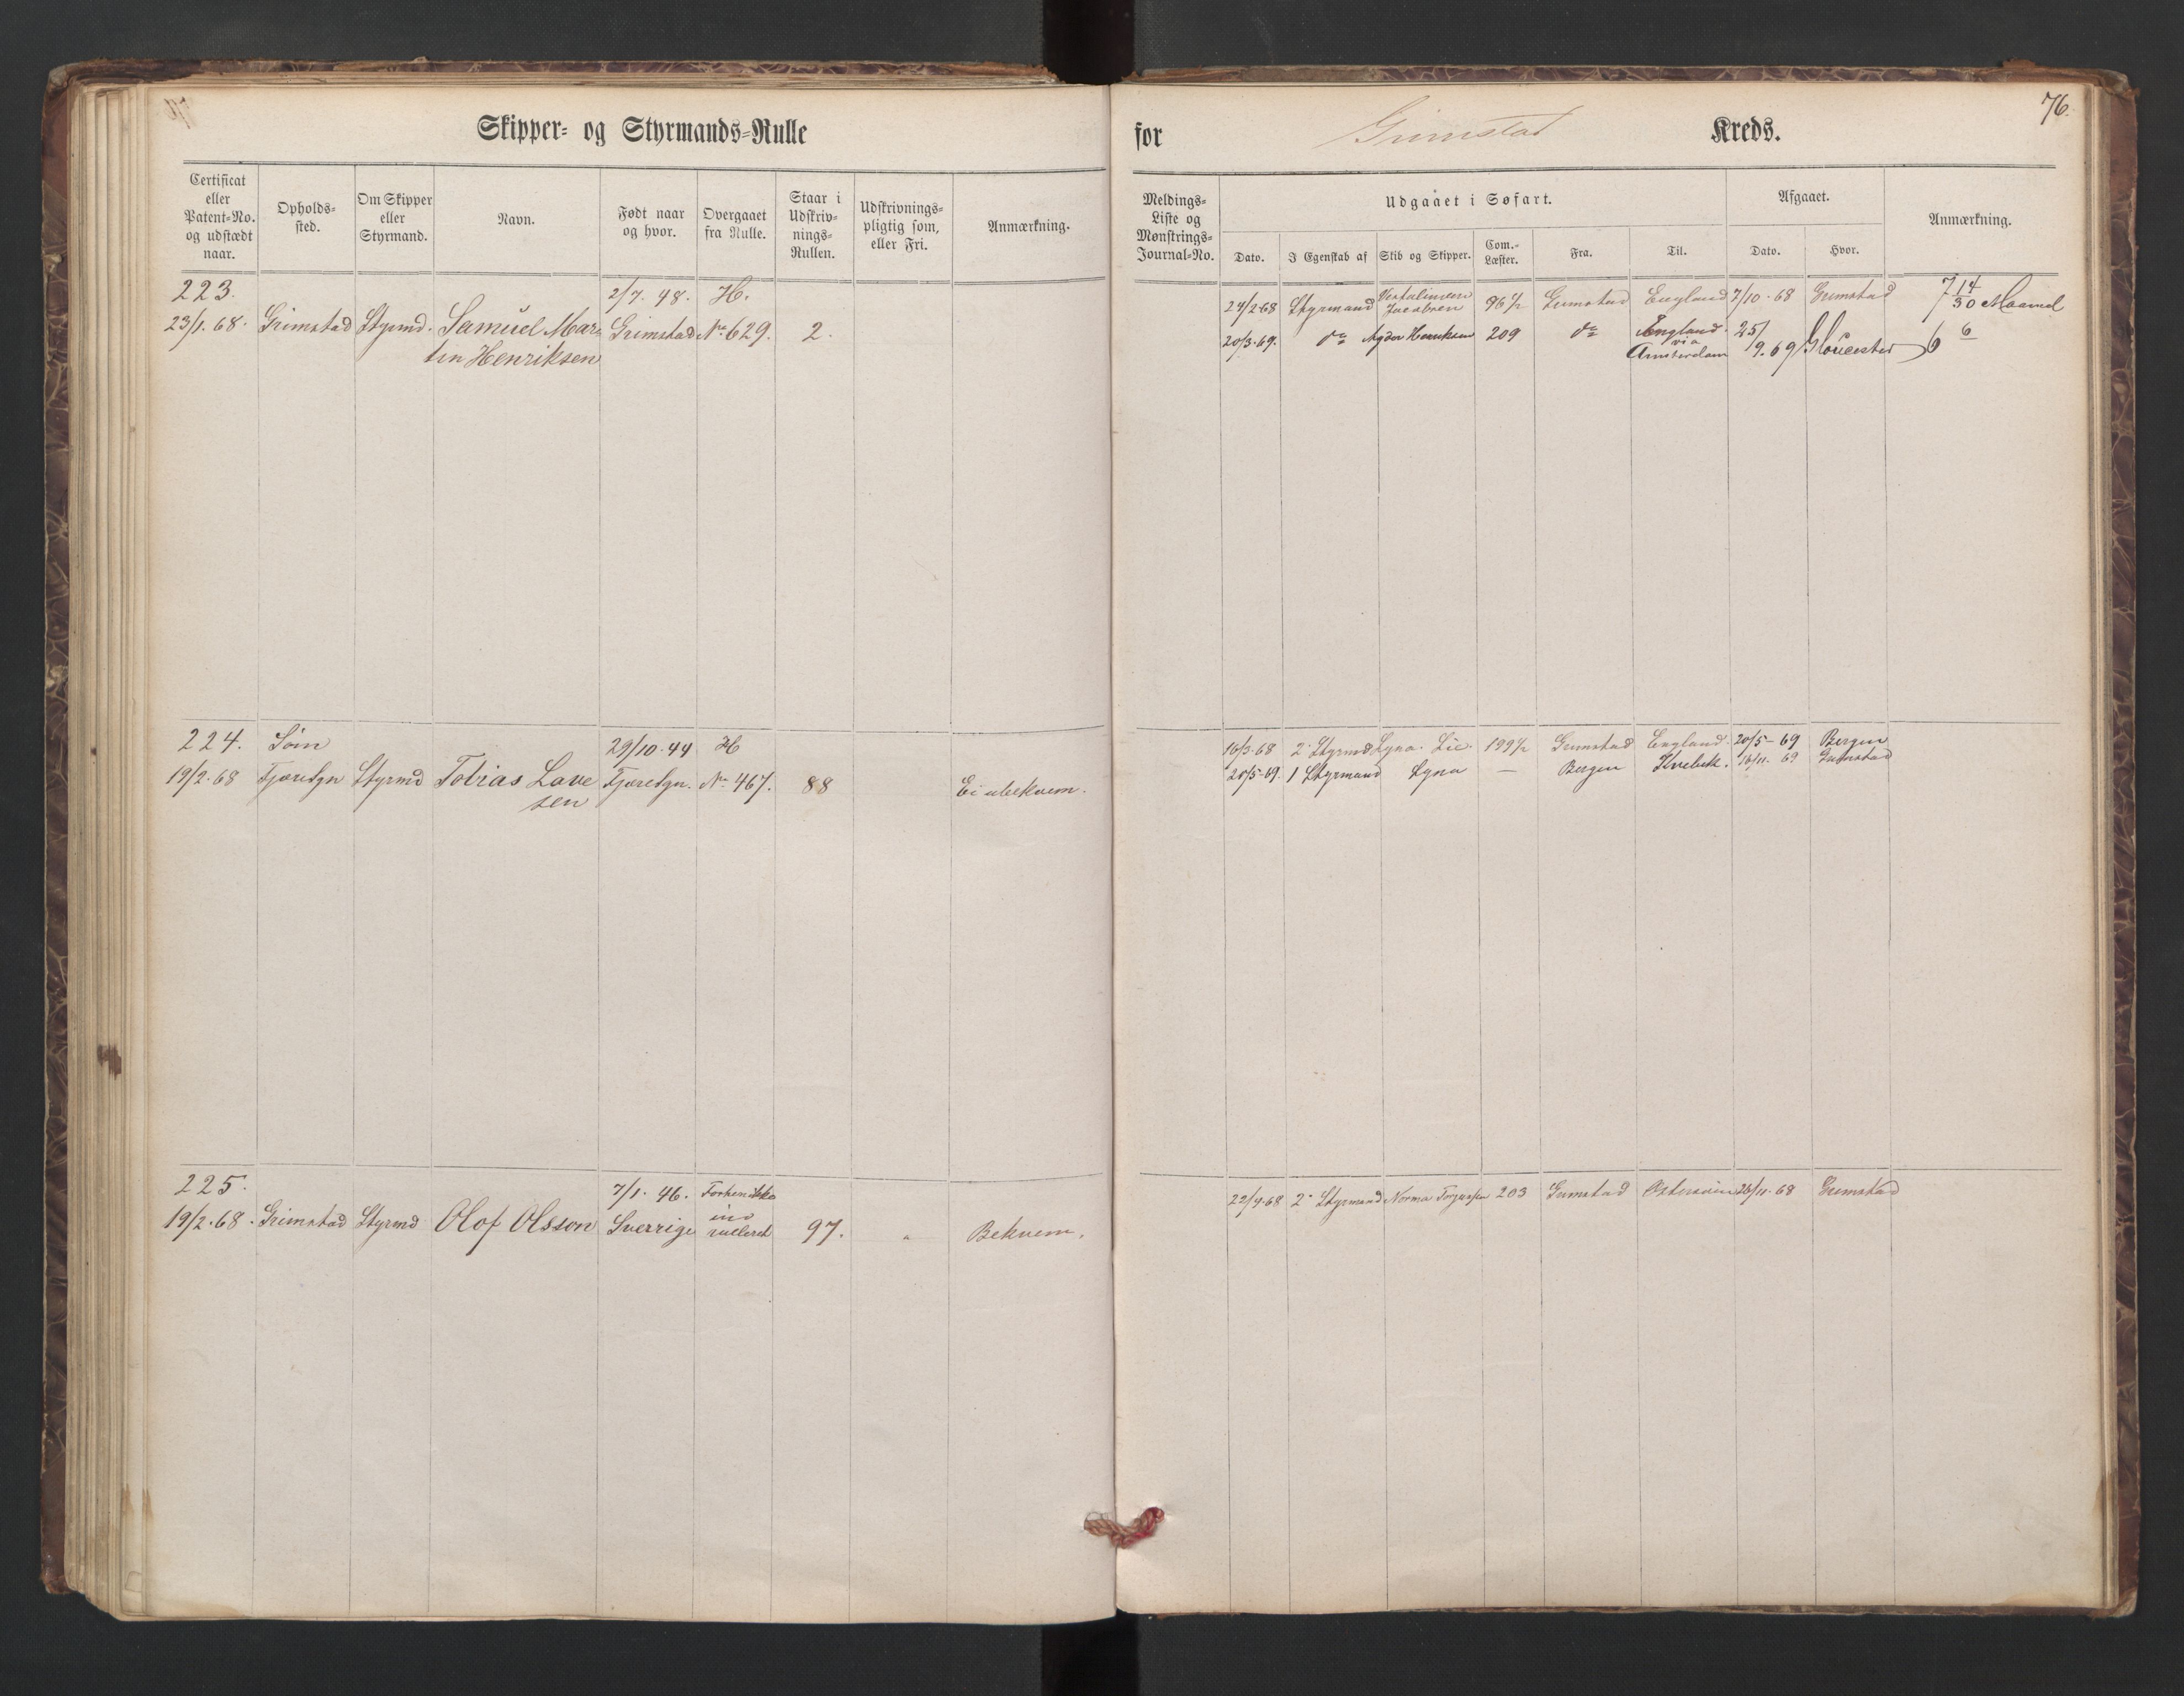 Skipper- og Styrmands-Rulle
for Grimstad Kreds.
76.
Certificat eller Patent-No. og udstædt naar.
Opholds-sted.
Om Skipper eller Styrmand.
Navn.
Født naar og hvor.
Overgaaet fra Rulle.
Staar i Udskriv-nings-Rullen.
Udskrivnings-pligtig som, eller Fri.
Anmærkning.
Meldings-Liste og Mønstrings-Journal-No.
Udgaaet i Søfart.
Dato.
I Egenskab af
Skib og Skipper.
Com.-Læster.
Fra.
Til.
Afgaaet.
Dato.
Hvor.
Anmærkning.
223. 2/7. 48. H.
23/1. 68. Grimstad Styrmd. Samuel Mar- Grimstad No 629. 2.
tin Henriksen
24/2 68 Styrmand Jacobsen 96 1/2 Grimstad England 7/10. 68 Grimstad 7 14/30 Maaned
20/3. 69. do Agder Henriksen 209 do England via Amsterdam 25/9. 69 Gloucester 6 6
224. Söm 29/10. 44 H
19/2. 68 FjæreSgn Styrmd Tobias Lave FjæreSgn. No 467. 88 Ei ubekvem.
sen
16/3. 68 2. Styrmd Lyna. Lie. 199 1/2 Grimstad England. 20/5 - 69 Bergen
20/5-69. 1 Styrmand Lyna — Bergen Kvebek. 16/11. 69 Grimstad
225. 7/1. 46. Forhen ikke
19/2. 68. Grimstad Styrmd Olof Olsson Sverrige ind rulleret 97. " Bekvem.
22/4. 68 2. Styrmand Norma Torjussen 203 Grimstad Østersøen 26/11. 68 Grimstad